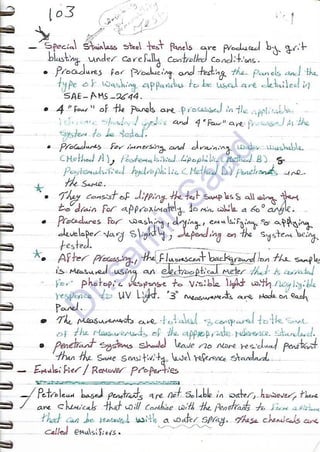 103
1
- Special Stainless steel test Panels are Produced by grit
blasting under carefully controlled Conditions.
• Procedures for Producing and testing the panels and the
type of washing apparatus to be used are detailed in
SAE-AMS-2644.
• 4 "Four" of the Panels are processed in the applicable
reference standard and 4 "Four" are processed in the
system to be tested.
• Procedures for immersing and draining water washable
(Method A), Postemulsified lipophilic (Method B) &
Postemulsified hydrophilic (Method D) Penetrants are
the Same.
• They consist of dipping the test samples & allowing them
to drain for approximately 10 min while a 60° angle.
• Procedures for washing, drying, emulsifying & applying
developer vary slightly, depending on the system being
tested.
• After Processing, the Fluorescent background on the samples
is measured using an electrooptical meter that is
for photopic response to visible light with negligible
response to UV Light. "3" measurements are made on each
Panel.
• The Measurements are totaled & compared to the sum
of the measurements of the appropriate reference standard.
• Penetrant systems should leave no more residual penetrant
than the same sensitivity level reference standard.
- Emulsifier / Remover Properties
Petroleum based penetrants are not soluble in water, however, there
are chemicals that will combine with the Penetrants to form a
that can be removed with a water spray. These chemicals are
called emulsifiers.